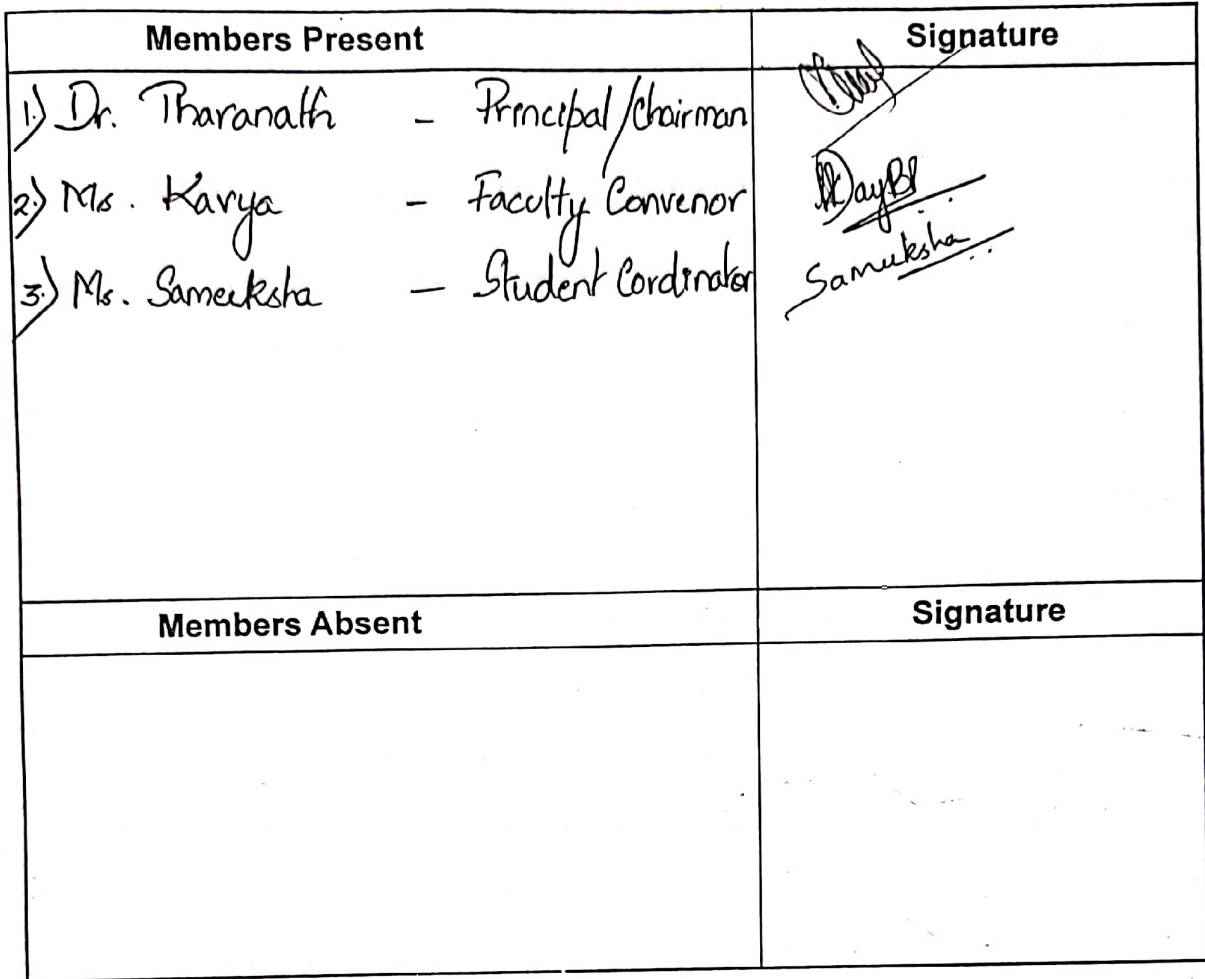 Members Present Signature
1) Dr. Tharanath - Principal/Chairman
2) Ms. Kavya - Faculty Convenor
3) Ms. Sameeksha - Student Cordinator Sameeksha
Members Absent Signature